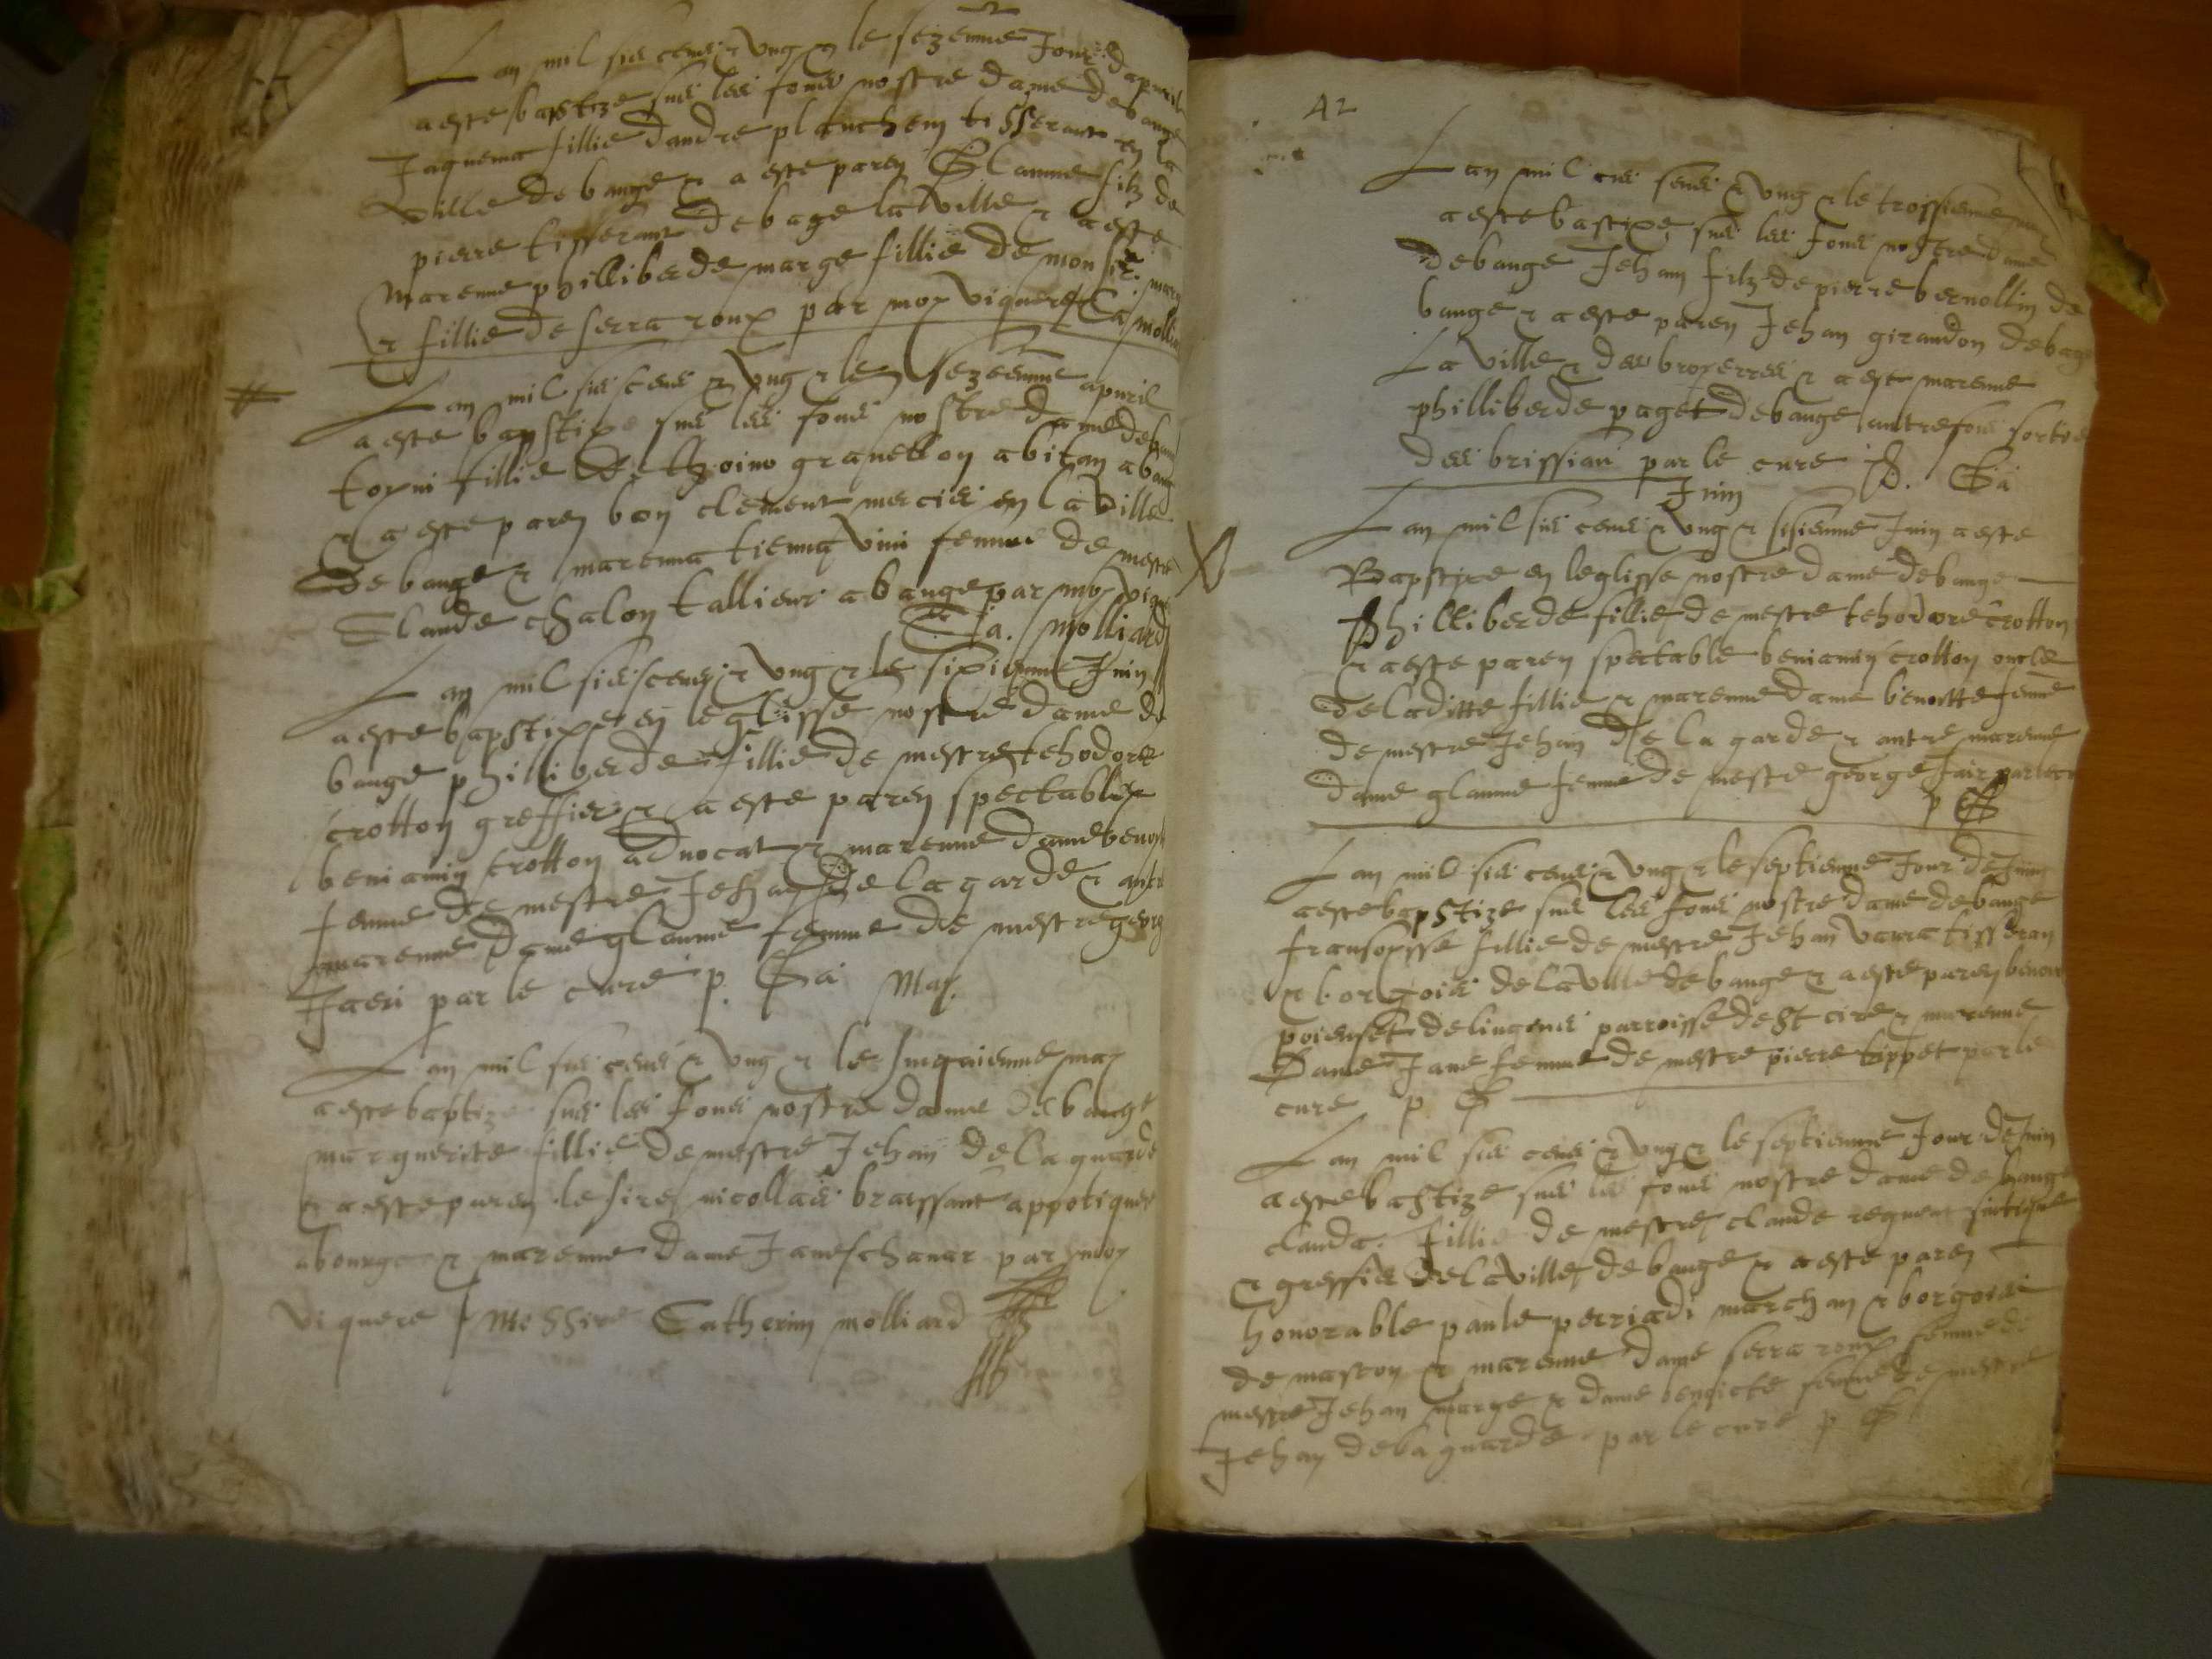 Lan mil sis cens & ung & le sezenme Jour dapvril
a este baptize sus les fons nostre dame de bauge
Jaquema fillie dandre planchem tisserant en la
ville de bauge & a este paren Glaume filz de
pierre tisserant de bage la ville & a este
marenne philliberde marge fillie de monsr. marg
& fillie de serra roux par moy viquere Ca molliar
Lan mil sis cens & ung & le sezeenme apvril
a este bapstixe sus les fons nostre dame de baug
toyni fillie de granetton abitan a baug
& a este paren bon clement mercier en la ville
de bauge & marenna tienna vini femme de mestre
Claude chalon tallieur a bauge par moy viqu
Ca. molliard
Lan mil sis cens & ung & le sixienme Juin
a este bapstixe en leglisse nostre dame de
bauge philliberde fillie de mestre tehodore
crotton greffier & a este paren spectable
beniamin crotton advocat & marenne dame benoi
femme de mestre Jehan de la garde & autre
marenne dame glaume femme de mestre georg
Jaeri par le cure p. Ga May.
Lan mil sis cens & ung & le sinquienme may
a este baptize sus les fons nostre dame de bauge
marguerite fillie de mestre Jehan de la guarde
& a este paren le sire nicollas braissant appotiquere
a bourge & marenne dame Jane schanar par moy
viquere messire Catherin molliard
42
Lan mil sis sens & ung & le troissienme may
a este bastixe sus les fons nostre dame
de bauge Jehan filz de pierre bernollin de
bauge & a este paren Jehan girandon de bage
La ville & des broyerres & a este marenne
philliberde paget de bauge autrefois sortie
des brissian par le cure p. Ga
Juin
Lan mil sis cens & ung & sisienme Juin a este
Bapstixe en leglisse nostre dame de bauge
philliberde fillie de mestre tehodore crotton
& a este paren spectable beniamin crotton oncle
de laditte fillie & marenne dame benoitte femme
de mestre Jehan de la garde & autre marenne
dame glaume femme de mestre george Jair par le cu
p G
Lan mil sis cens & ung & le septienme Jour de Juin
a este bapstize sus les fons nostre dame de bauge
fransoysse fillie de mestre Jehan varra tisseran
& borgois de la ville de bauge & a este paren benoi
poienset de lingens parroisse de St cire & marenne
Dame Jane femme de mestre pierre tippet par le
cure p G
Lan mil sis cens & ung & le septienme Jour de Juin
a este bastize sus les fons nostre dame de bauge
clauda fillie de mestre claude reguem sintique
& greffie de la ville de bauge & a este paren
honorable paule perriadi marchan & borgois
de mascon & marenne dame serra roux femme de
mestre Jehan marge & dame benoicte femme de mestre
Jehan de la guarde par le cure p G